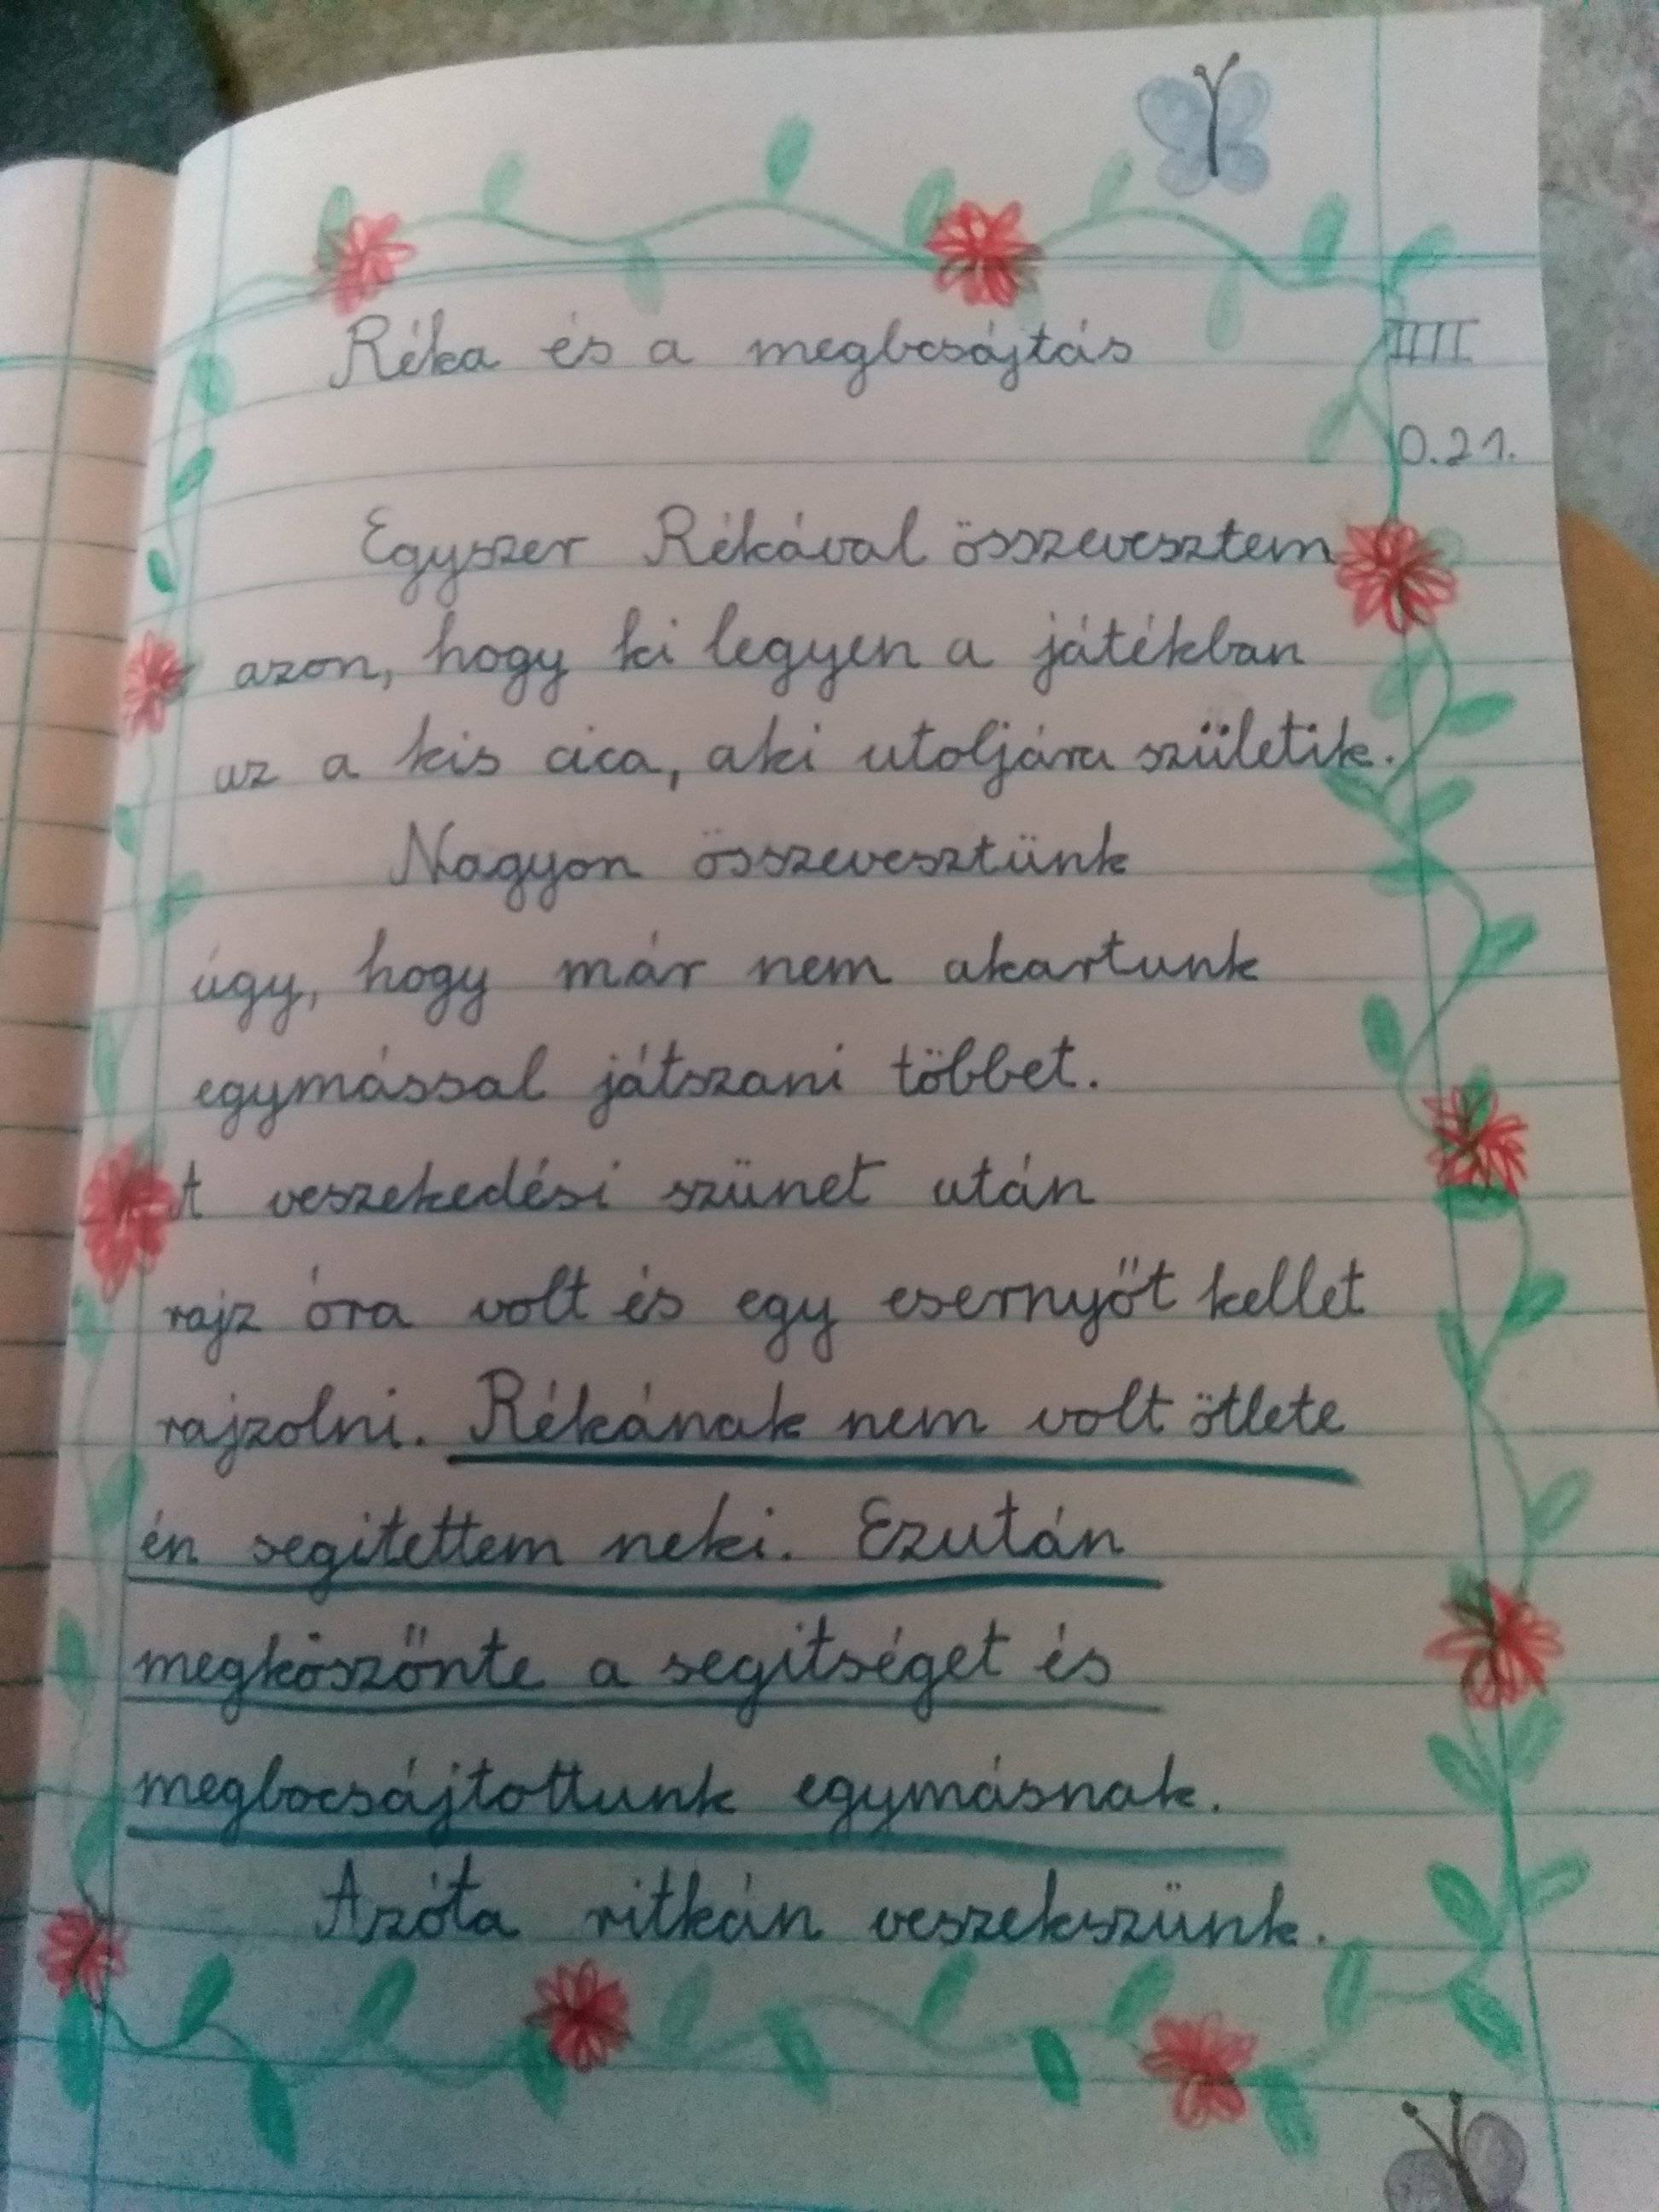 Réka és a megbcsájtás
III
0.21.
Egyszer Rékával összevesztem
azon, hogy ki legyen a játékban
az a kis cica, aki utoljára születik.
Nagyon összevesztünk
úgy, hogy már nem akartunk
egymással játszani többet.
A veszekedési szünet után
rajz óra volt és egy esernyőt kellet
rajzolni. Rékának nem volt ötlete
én segitettem neki. Ezután
megköszönte a segitséget és
megbocsájtottunk egymásnak.
Azóta ritkán veszekszünk.